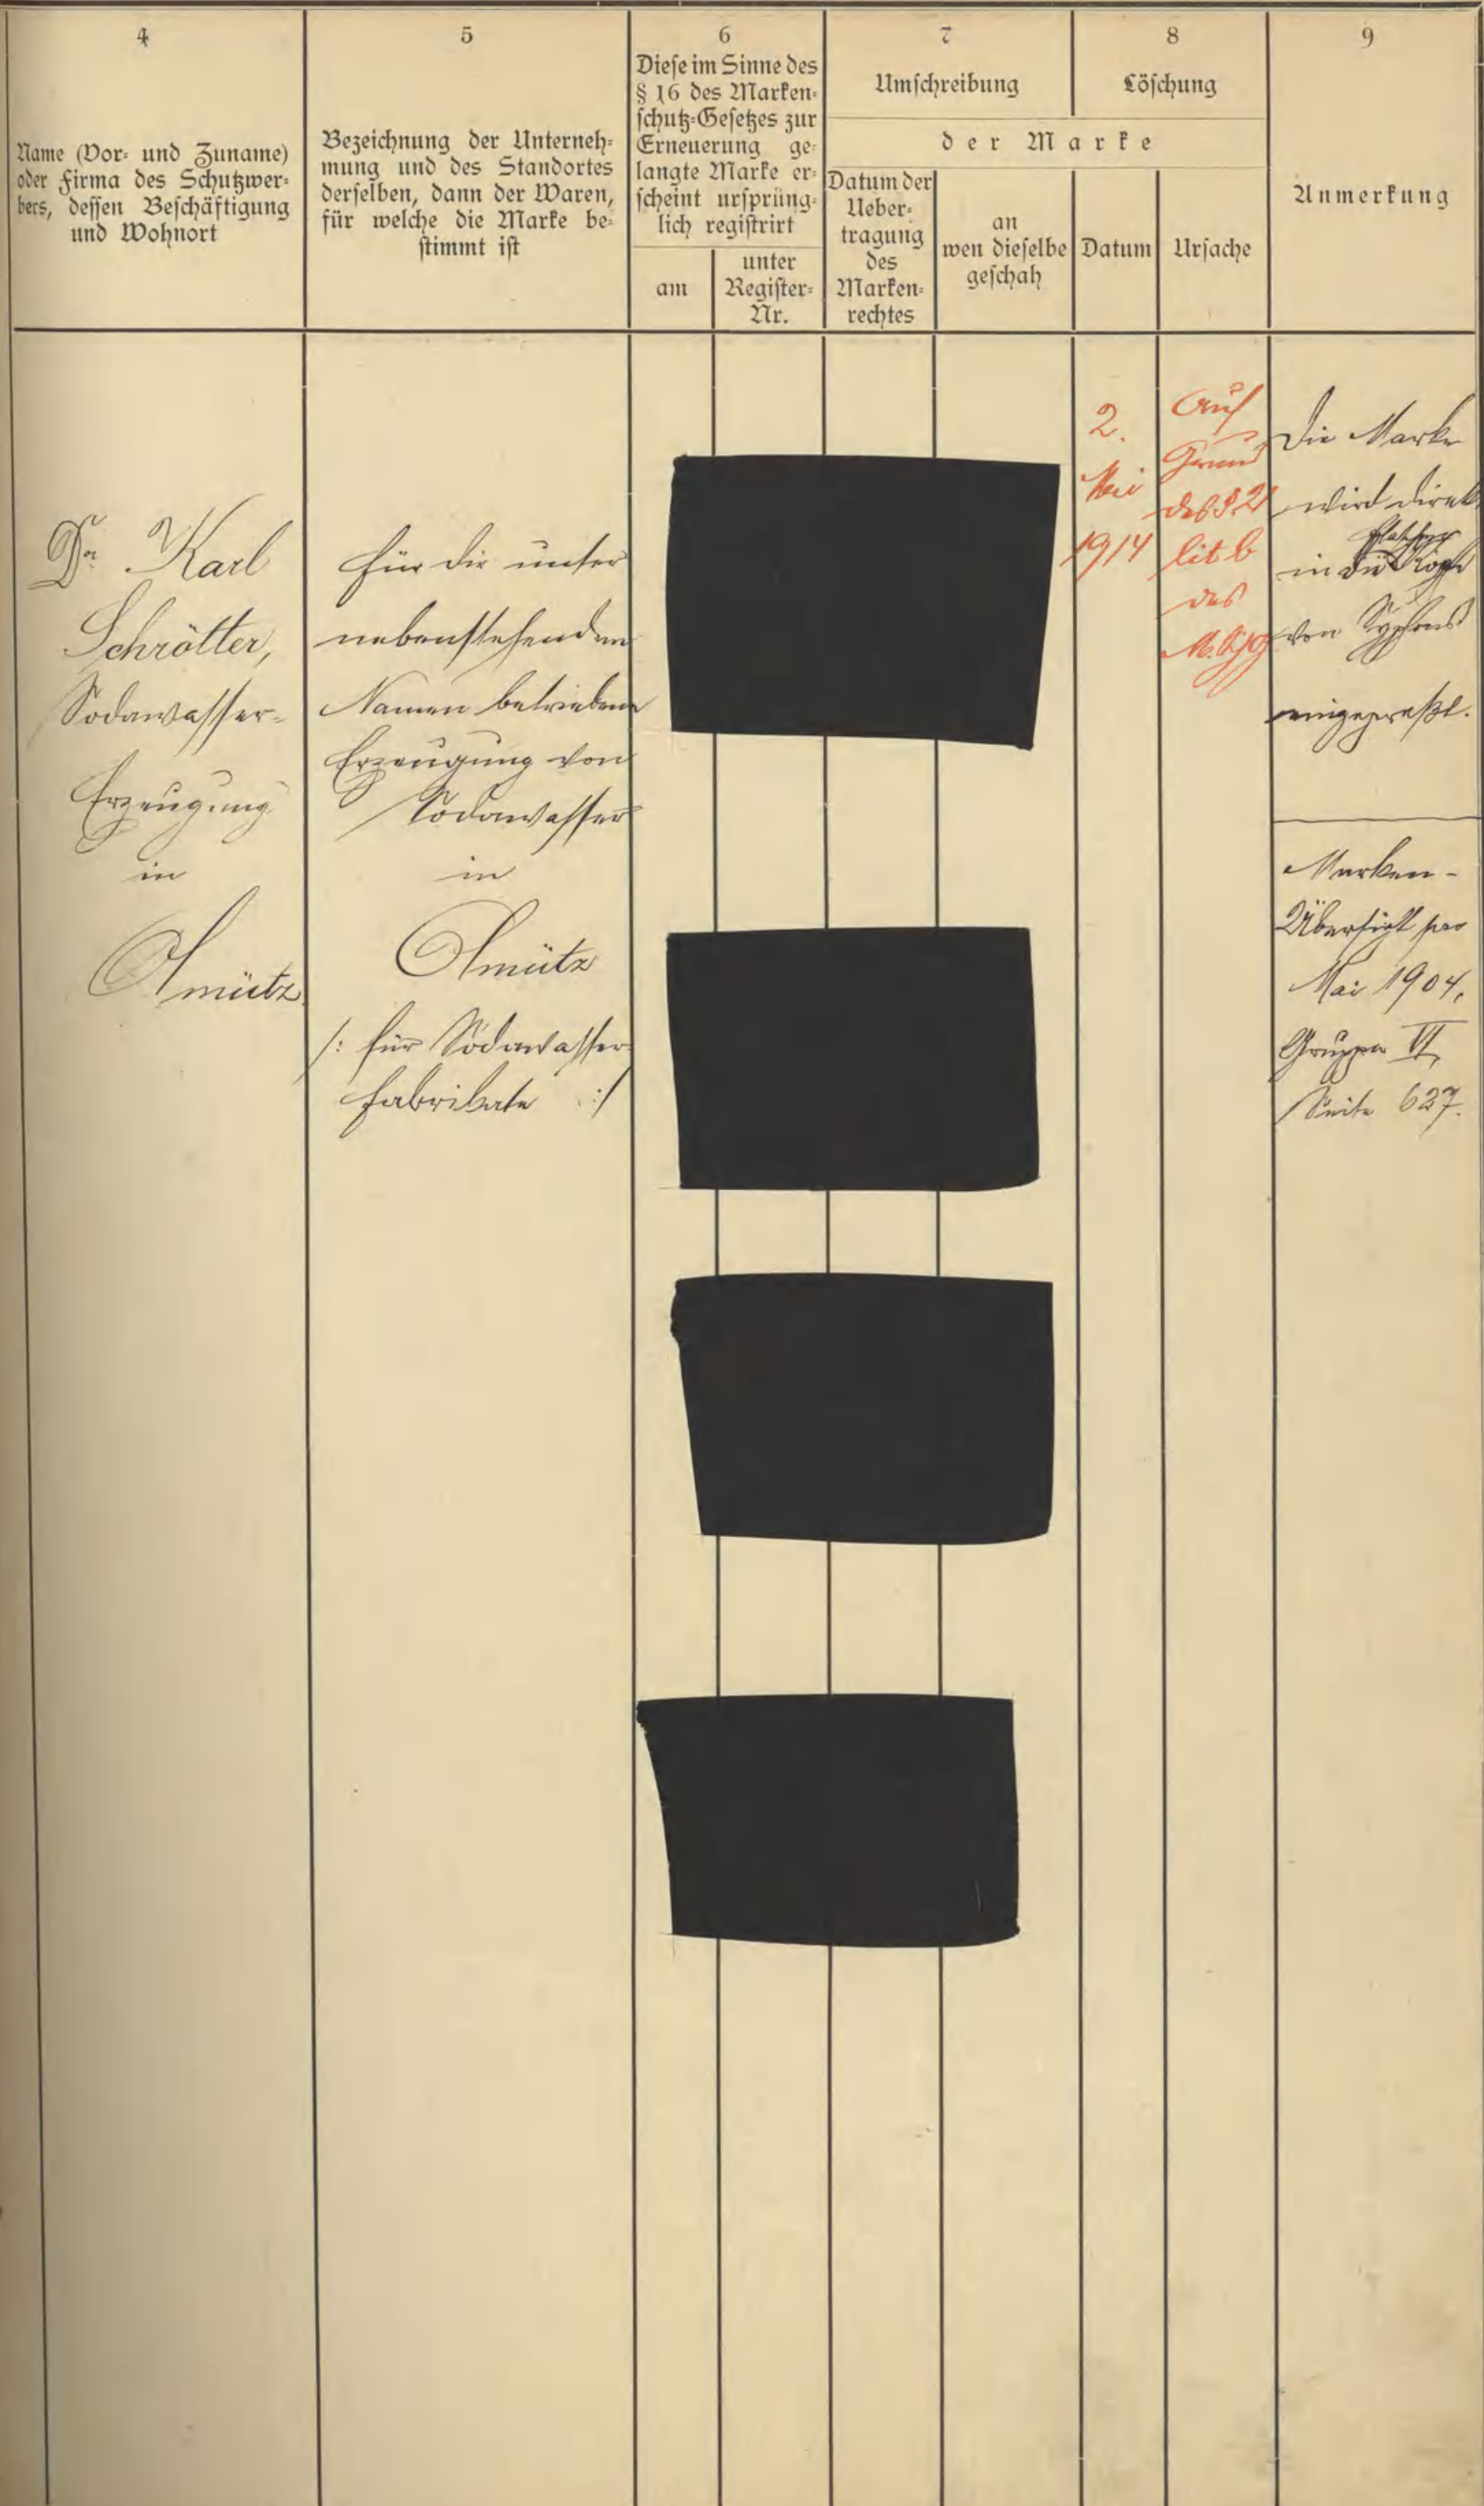 4
Name (Vor- und Zuname)
oder Firma des Schutzwer-
bers, dessen Beschäftigung
und Wohnort
5
Bezeichnung der Unterneh-
mung und des Standortes
derselben, dann der Waren,
für welche die Marke be-
stimmt ist
6
Diese im Sinne des
§ 16 des Marken-
schutz-Gesetzes zur
Erneuerung ge-
langte Marke er-
scheint ursprüng-
lich registrirt
am
unter
Register-
Nr.
7
Umschreibung
8
Löschung
der Marke
Datum der
Ueber-
tragung
des
Marken-
rechtes
an
wen dieselbe
geschah
Datum
Ursache
9
Anmerkung
Dr. Karl
Schrötter,
Sodawasser-
Erzeugung
in
Olmütz
Für die unter
nebenstehendem
Namen betriebene
Erzeugung von
Sodawasser
in
Olmütz
/: für Sodawasser-
fabrikate :/
2.
Mai
1914
Auf
Grund
des § 21
lit b
des
M.Sch.G
Die Marke
wird direkt
in die Köpfe
von Syphons
eingepreßt.
Marken-
Übersicht pro
Mai 1904,
Gruppe VI,
Seite 627.